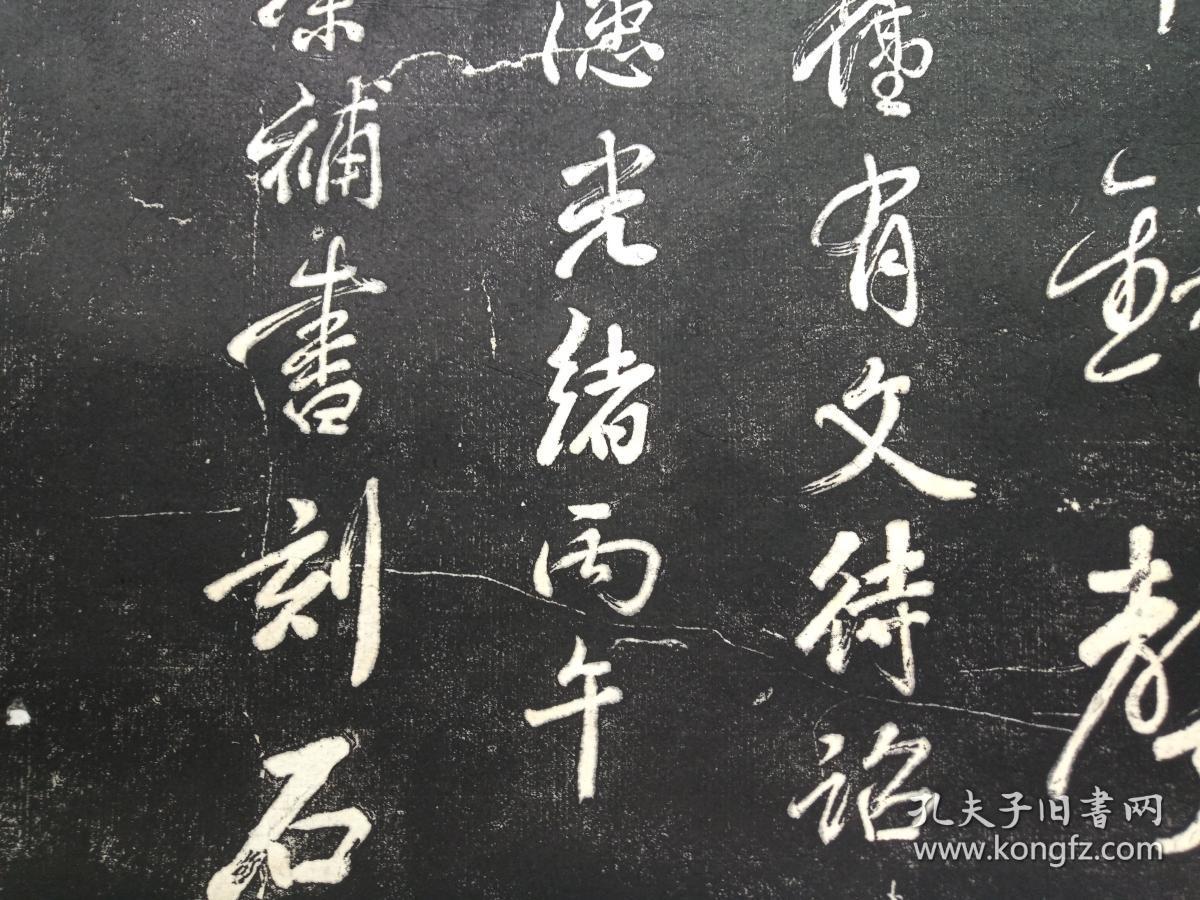 舊有文待詔
漶光緒丙午
補書刻石
孔夫子旧書网
www.kongfz.com